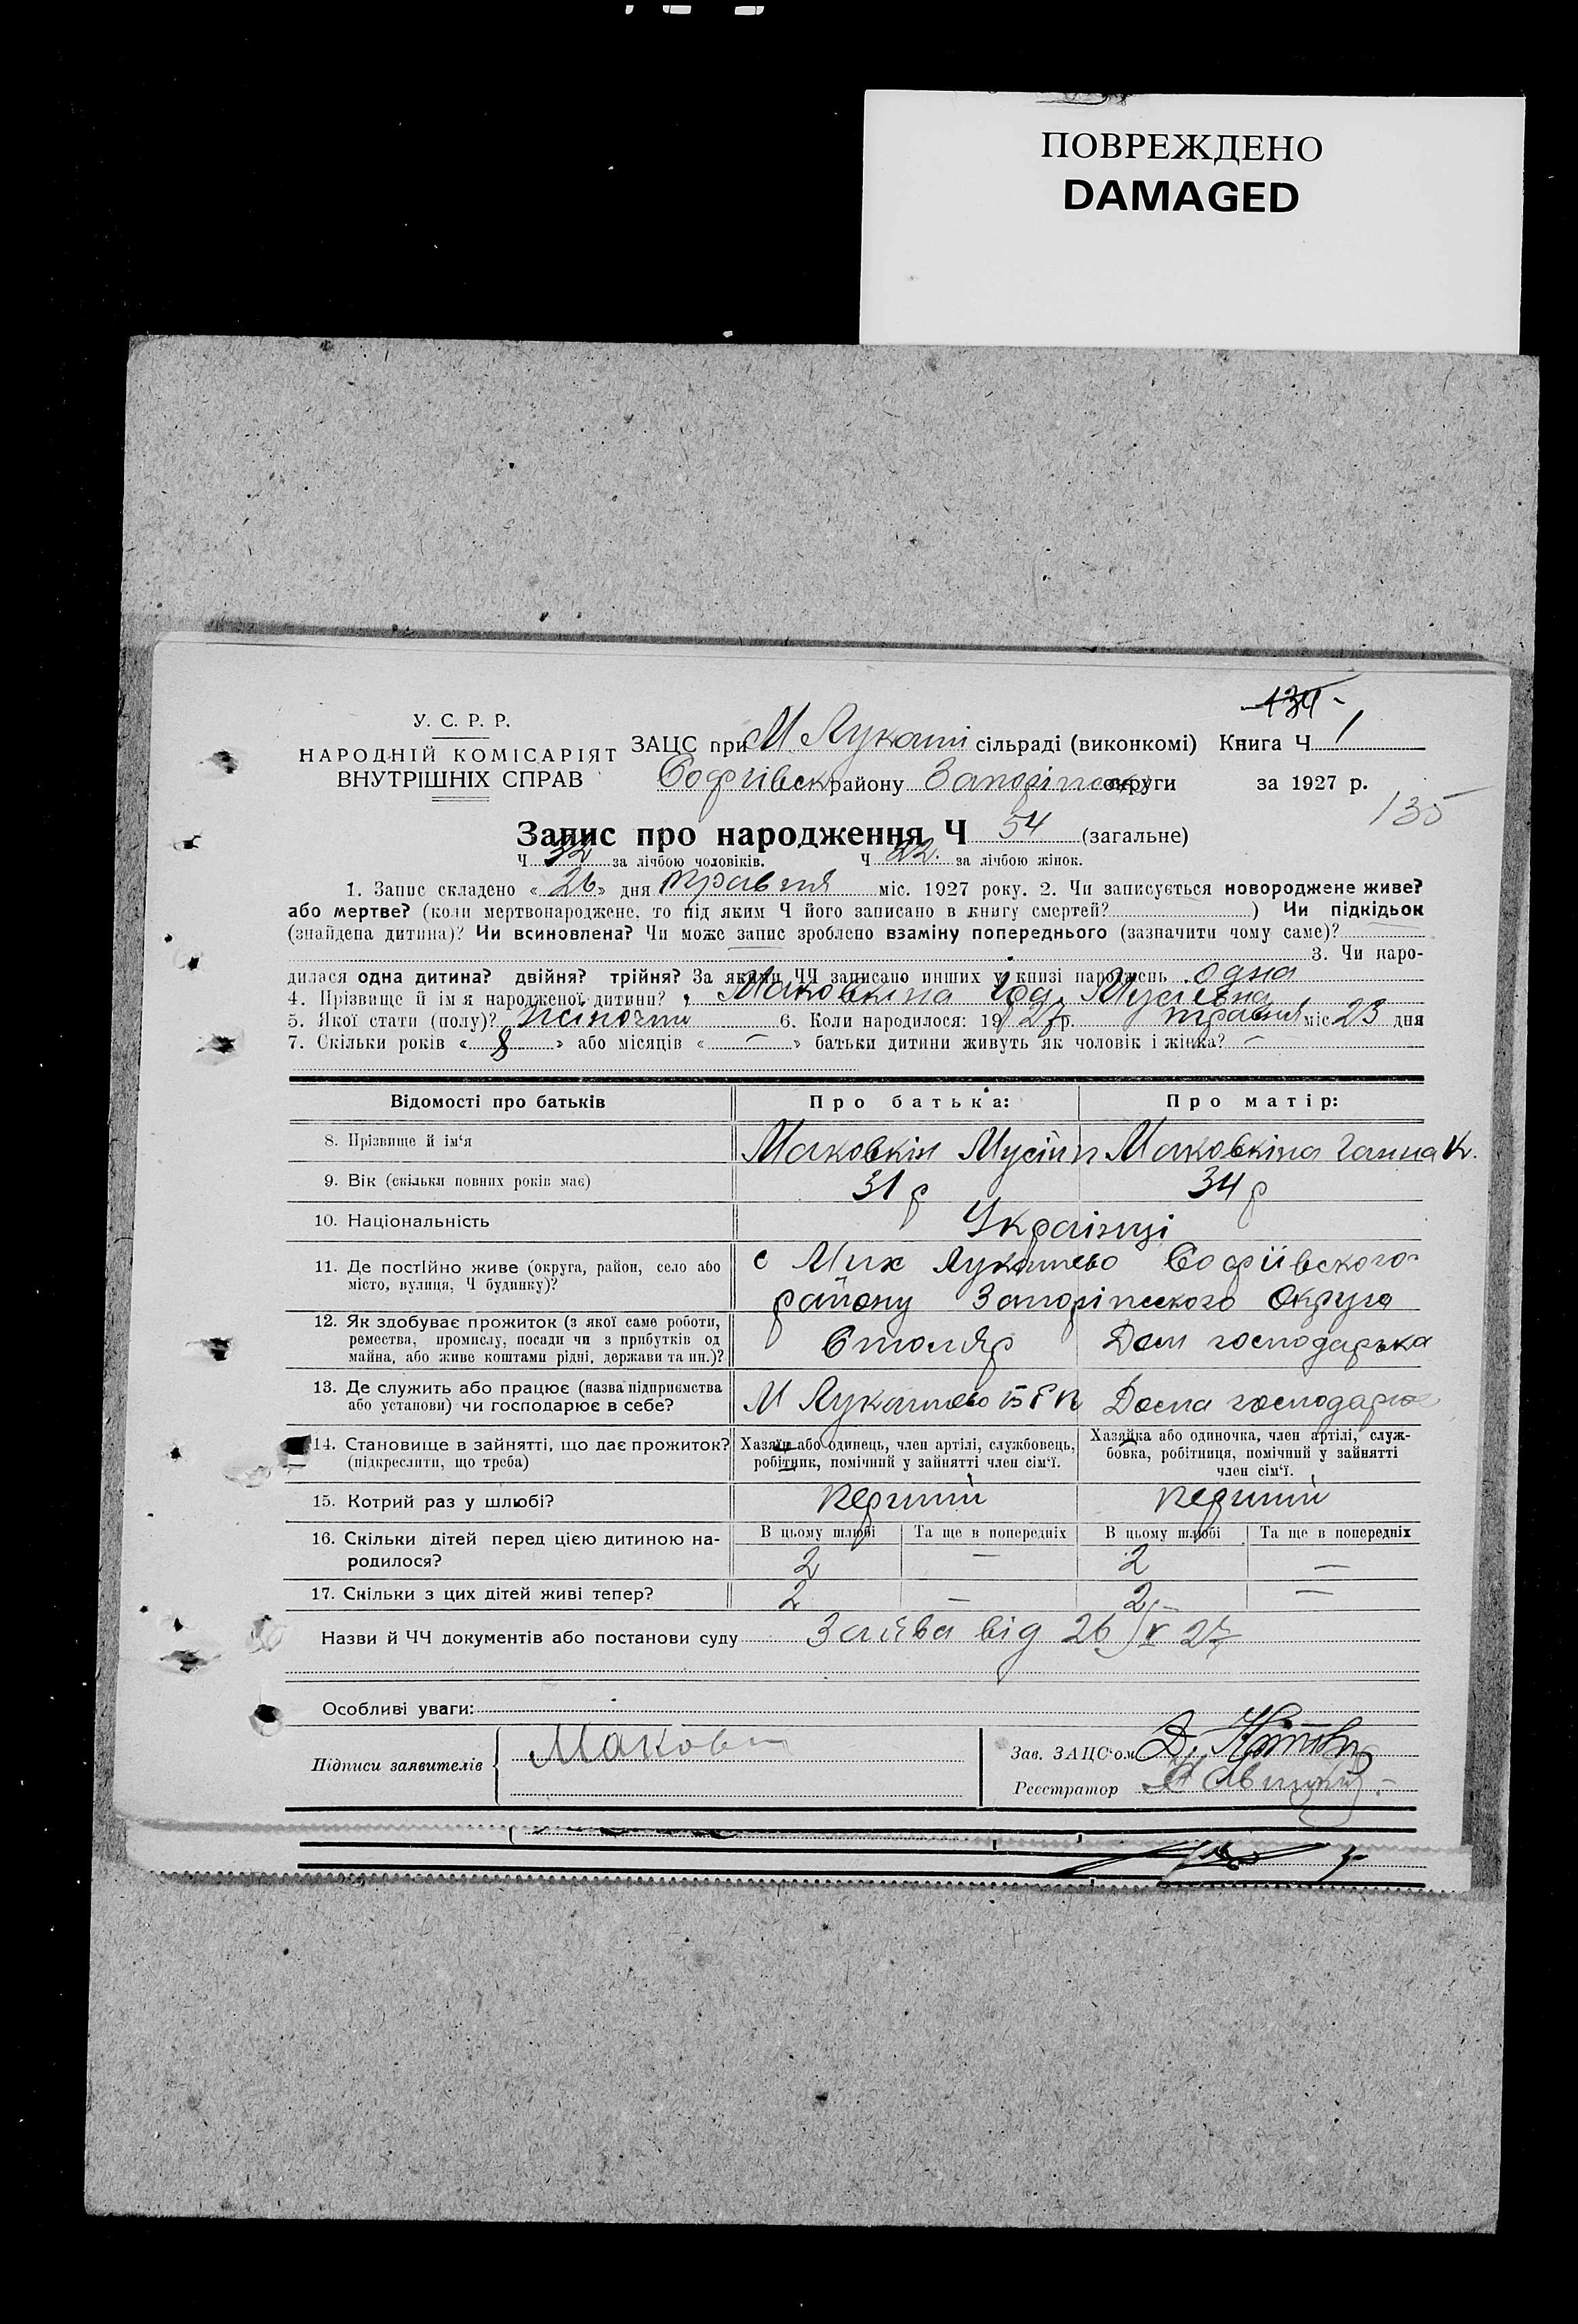 ПОВРЕЖДЕНО
DAMAGED
134
У. С. Р. Р.
НАРОДНІЙ КОМІСАРІЯТ
ВНУТРІШНІХ СПРАВ
ЗАЦС при М Лукаші сільраді (виконкомі) Книга Ч 1
Софіївськ району Запоріж округи за 1927 р.
135
Запис про народження Ч 54 (загальне)
Ч 32 за лічбою чоловіків. Ч 22. за лічбою жінок.
1. Запис складено «26» дня травня міс. 1927 року. 2. Чи записується новороджене живе?
або мертве? (коли мертвонароджене, то під яким Ч його записано в книгу смертей? ) Чи підкідьок
(знайдена дитина)? Чи всиновлена? Чи може запис зроблено взаміну попереднього (зазначити чому саме)?
3. Чи наро-
дилася одна дитина? двійня? трійня? За якими ЧЧ записано инших у книзі народжень одна
4. Прізвище й ім'я народженої дитини? Маковкіна Мусіевна
5. Якої стати (полу)? жіночти 6. Коли народилося: 1927 р. травня міс 23 дня
7. Скільки років « 8 » або місяців « — » батьки дитини живуть як чоловік і жінка? —
Відомості про батьків Про батька: Про матір:
8. Прізвище й ім'я Маковкін Мусій Маковкіна Ганна К.
9. Вік (скільки повних років має) 31 р 34 р
10. Національність Українці
11. Де постійно живе (округа, район, село або
місто, вулиця, Ч будинку)?
с Мих Лукашево Софіївського
району Запоріжского Округа
12. Як здобуває прожиток (з якої саме роботи,
ремества, промислу, посади чи з прибутків од
майна, або живе коштами рідні, держави та ин.)?
Столяр Дом господарька
13. Де служить або працює (назва підприємства
або установи) чи господарює в себе?
М Лукашево Дома господарює
14. Становище в зайнятті, що дає прожиток?
(підкреслити, що треба)
Хазяїн або одинець, член артілі, службовець,
робітник, помічний у зайнятті член сім'ї.
Хазяйка або одиночка, член артілі, служ-
бовка, робітниця, помічний у зайнятті
член сім'ї.
15. Котрий раз у шлюбі? перший перший
16. Скільки дітей перед цією дитиною на-
родилося?
В цьому шлюбі Та ще в попередніх В цьому шлюбі Та ще в попередніх
2 — 2 —
17. Скільки з цих дітей живі тепер? 2 — 2 —
Назви й ЧЧ документів або постанови суду Заява від 26/V 27
Особливі уваги:
Підписи заявителів Маковк
Зав. ЗАЦС'ом
Реєстратор